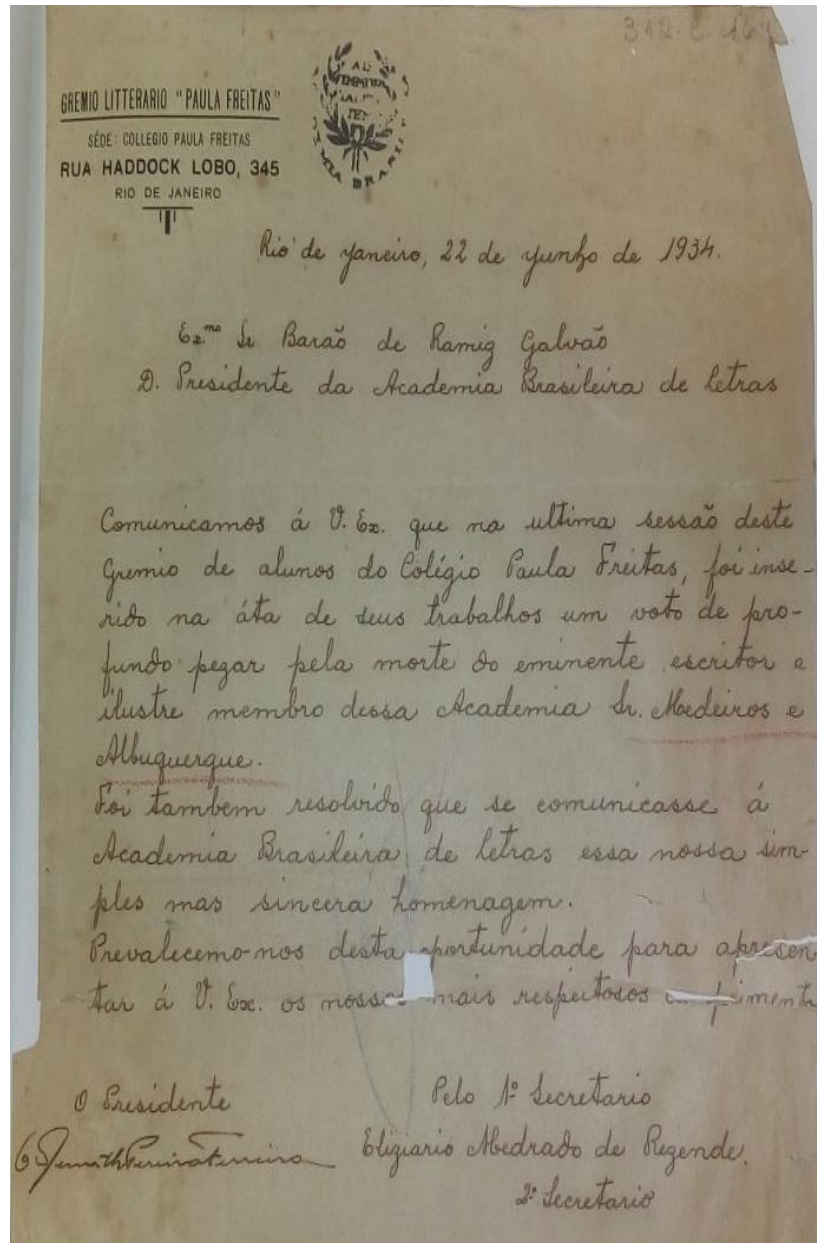 312-C-164
GREMIO LITTERARIO "PAULA FREITAS"
SÉDE: COLLEGIO PAULA FREITAS
RUA HADDOCK LOBO, 345
RIO DE JANEIRO
Rio de Janeiro, 22 de Junho de 1934.
Ex.mo Sr. Barão de Ramiz Galvão
D. Presidente da Academia Brasileira de Letras
Comunicamos á V. Ex. que na ultima sessão deste
Gremio de alunos do Colégio Paula Freitas, foi inse-
rido na áta de seus trabalhos um voto de pro-
fundo pezar pela morte do eminente escritor e
ilustre membro dessa Academia Sr. Medeiros e
Albuquerque.
Foi tambem resolvido que se comunicasse á
Academia Brasileira de Letras essa nossa sim-
ples mas sincera homenagem.
Prevalecemo-nos desta oportunidade para apresen
tar á V. Ex. os nossos mais respeitosos
O Presidente
Pelo 1º Secretario
Eliziario Medrado de Rezende.
2º Secretario